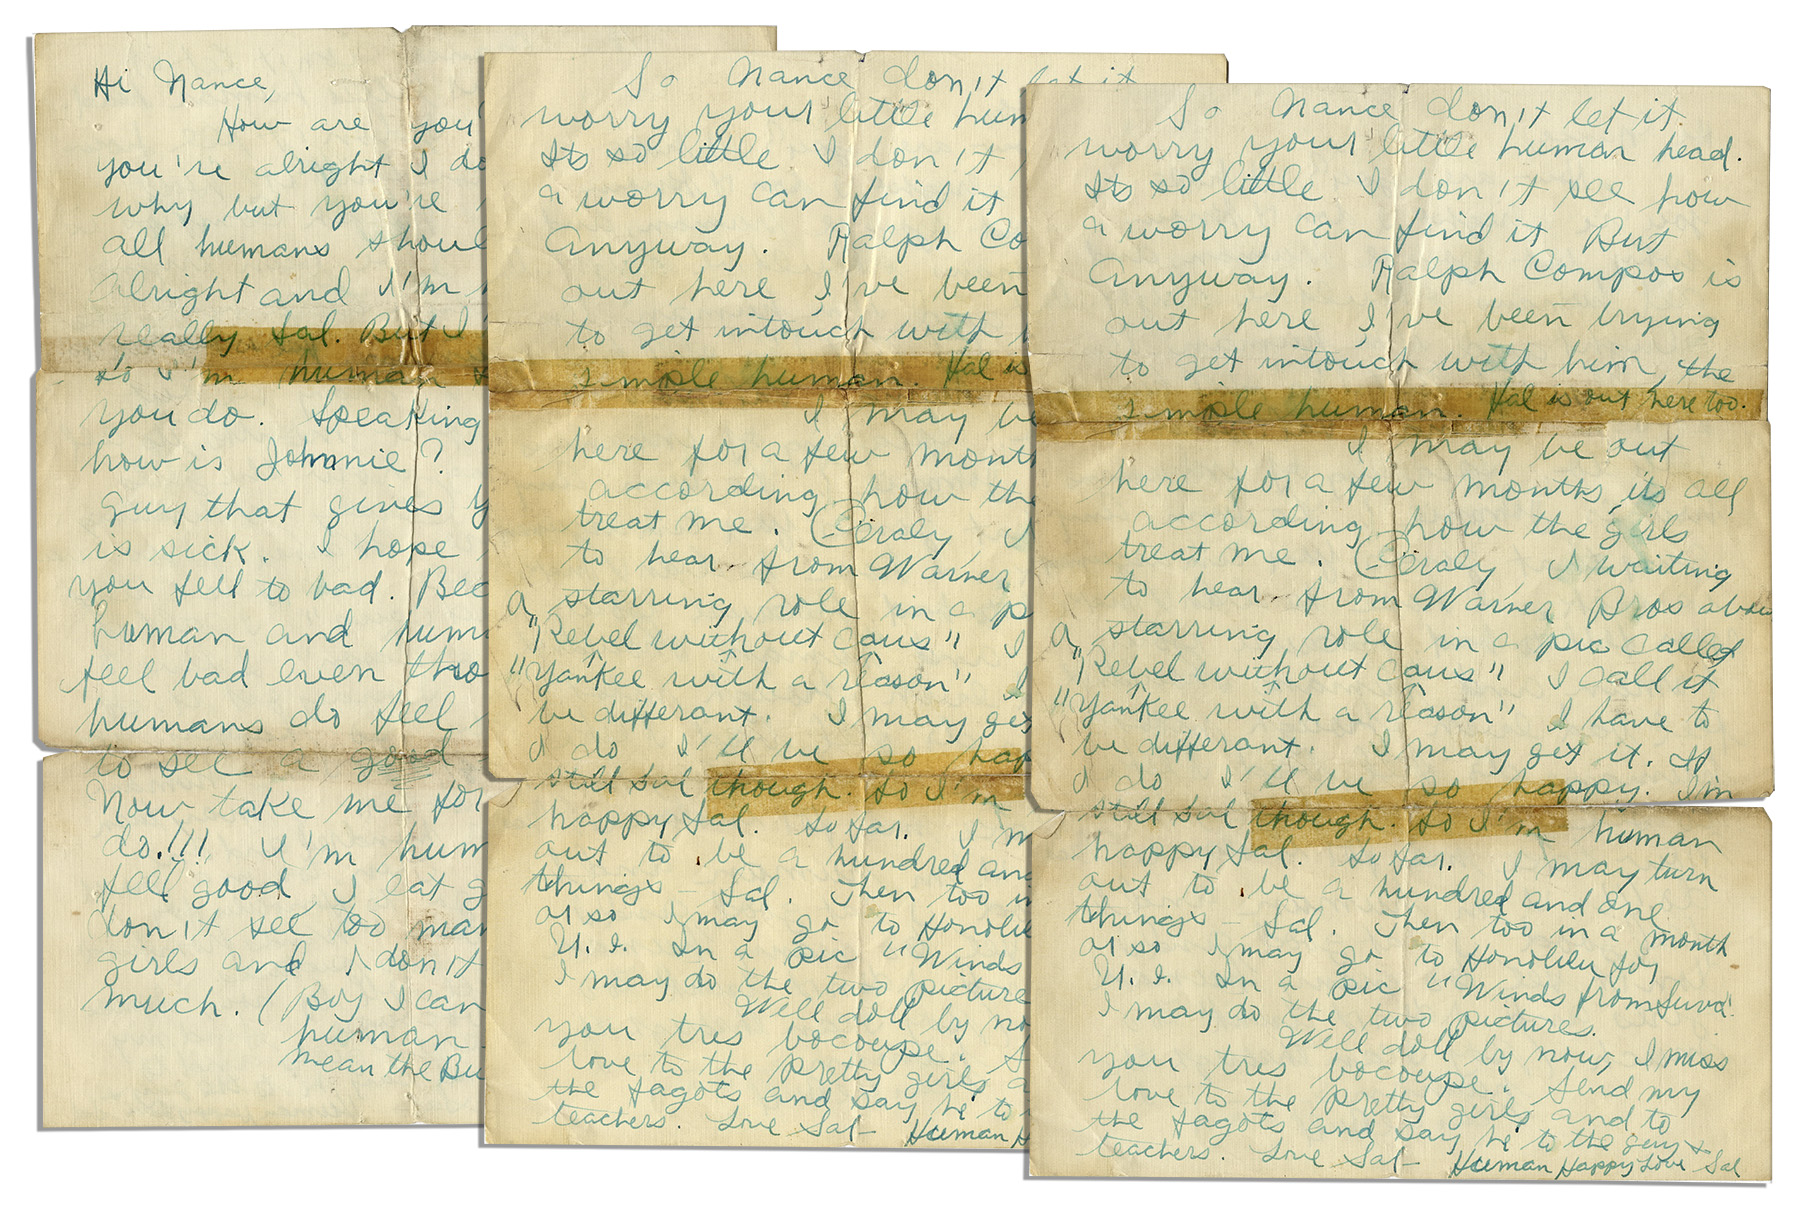 Hi Nance,
How are you
you're alright I do
why but you're
all humans shoul
alright and I'm
really Sal. But I
so I'm human
you do. Speaking
how is Johnnie?
guy that gives y
is sick. I hope
you fell to bad. Bec
human and hum
feel bad even tho
humans do feel
to see a good
Now take me for
do.!!! I'm hum
fell good I eat g
don't see too man
girls and I don't
much. (Boy I can
human
mean the Bu
So Nance don't let it
worry your little hum
Its so little I don't
a worry can find it
Anyway. Ralph Co
out here I've been
to get intouch with
simple human. Hal is
I may be
here for a few month
according how the
treat me. (Ceraly, I
to hear from Warner
a starring role in a p
"Rebel without caus" I
"Yankee with a reason" I
be differant. I may get
I do I'll be so hap
still Sal though. So I'm
happy Sal. So far. I m
out to be a hundred and
things - Sal. Then too in
or so I may go to Honolulu
U.I. In a pic "Winds
I may do the two picture
Well doll by no
you tres bocoupe. S
love to the pretty girls a
the fagots and say hi to
teachers. Love Sal - Human H
So Nance don't let it
worry your little human head.
Its so little I don't see how
a worry can find it But
Anyway. Ralph Compos is
out here I've been trying
to get intouch with him, the
simple human. Hal is out here too.
I may be out
here for a few months its all
according how the girls
treat me. (Ceraly, I waiting
to hear from Warner Bros about
a starring role in a pic called
"Rebel without caus" I call it
"Yankee with a reason" I have to
be differant. I may get it. If
I do I'll be so happy. I'm
still Sal though. So I'm human
happy Sal. So far. I may turn
out to be a hundred and one
things - Sal. Then too in a month
or so I may go to Honolulu for
U.I. In a pic "Winds from Suva"
I may do the two pictures.
Well doll by now, I miss
you tres bocoupe. Send my
love to the pretty girls and to
the fagots and say hi to the guy &
teachers. Love Sal - Human Happy Love Sal